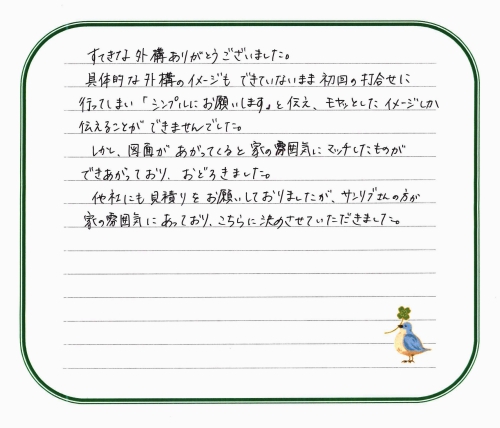 すてきな外構ありがとうございました。
具体的な外構のイメージも できていないまま 初回の打合せに
行ってしまい 「シンプルにお願いします」と伝え、モヤッとした イメージしか
伝えることが できませんでした。
しかし、図面が あがってくると 家の雰囲気に マッチしたものが
できあがっており、おどろきました。
他社にも 見積りを お願いしておりましたが、サンリブさんの方が
家の雰囲気に あっており、こちらに 決めさせていただきました。